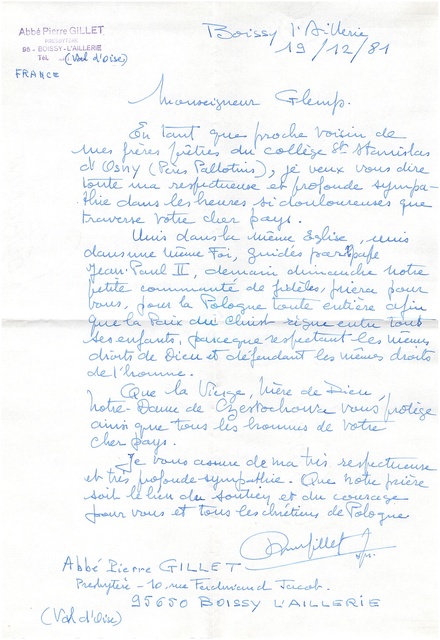 Abbé Pierre GILLET
PRESBYTÈRE
95 - BOISSY-L'AILLERIE
Tél. (Val d'Oise)
FRANCE
Boissy l'Aillerie
19/12/81
Monseigneur Glemp.
En tant que proche voisin de
mes frères prêtres du collège St Stanislas
d'Osny (Pères Pallotins), je veux vous dire
toute ma respectueuse et profonde sympa-
thie dans les heures si douloureuses que
traverse votre cher pays.
Unis dans la même Eglise, unis
dans une même Foi, guidés par
Jean-Paul II, demain dimanche notre
petite communauté de fidèles, priera pour
vous, pour la Pologne toute entière afin
que la Paix du Christ règne entre tous
ses enfants, parceque respectant les mêmes
droits de Dieu et défendant les mêmes droits
de l'homme.
Que la Vierge, Mère de Dieu,
Notre-Dame de Czestochowa vous protège
ainsi que tous les hommes de votre
cher pays.
Je vous assure de ma très respectueuse
et très profonde sympathie. Que notre prière
soit le lien du soutien et du courage
pour vous et tous les chrétiens de Pologne
Abbé Pierre GILLET
Presbytère - 10, rue Ferdinand Jacob.
95650 BOISSY L'AILLERIE
(Val d'Oise)